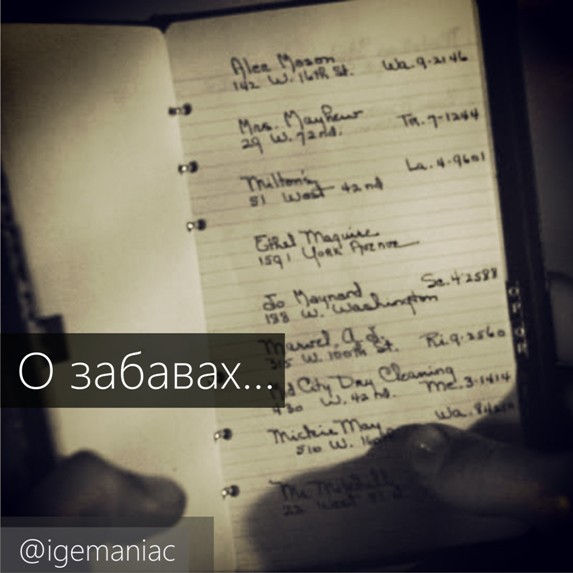 Alec Mason
142 W. 16th St. Wa. 9-2146
Mrs. Mayhew
29 W. 72nd. Tr. 7-1244
Milton's La. 4-9601
51 West 42nd
Ethel Maguire
1591 York Avenue
Jo Maynard Se. 4-2588
188 W. Washington
Marvel, A. J.
W. 100th St. Ri. 9-2560
City Dry Cleaning
W. 42nd. Me. 3-1414
О забавах...
Mickie May Wa.
510 W.
@igemaniac